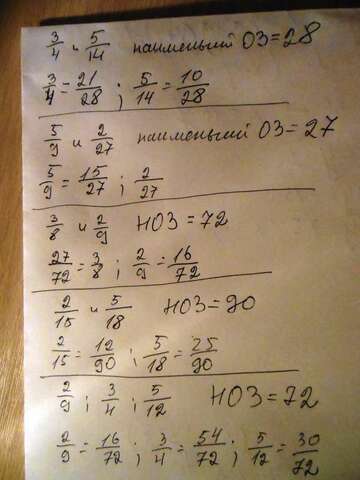 3/4 и 5/14 наименьший ОЗ=28
3/4=21/28 ; 5/14=10/28
5/9 и 2/27 наименьший ОЗ=27
5/9=15/27 ; 2/27
3/8 и 2/9 НОЗ=72
27/72=3/8 ; 2/9=16/72
2/15 и 5/18 НОЗ=90
2/15=12/90 ; 5/18=25/90
2/9 ; 3/4 ; 5/12 НОЗ=72
2/9=16/72 ; 3/4=54/72 ; 5/12=30/72